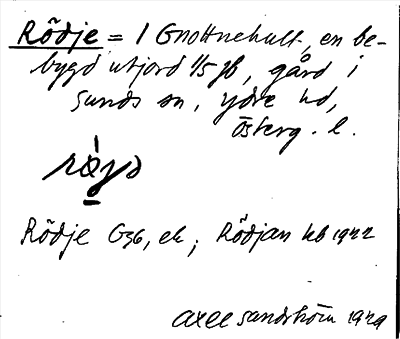 Rödje = 1 Gnottnehult, en be-
bygd utjord 1/5 jb, gård i
Sunds sn, Ydre hd,
Österg. l.
Rödje G36, ek; Rödjan kb 1922
Axel Sandström 1929